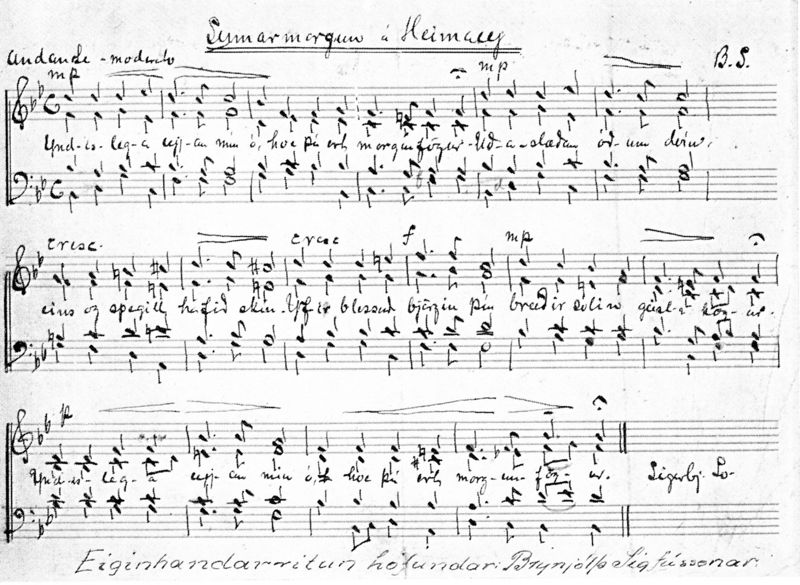 Sumarmorgun á Heimaey
Andante - moderato B.S.
mp mp
Ynd-is-leg-a eyj-an mín ó, hve þú ert morgunfögur. Úð-a-slæðan ód-um dvín,
cresc. cresc f mp
eins og spegill hafið skín. Yfir blessuð björgin þín breiðir sólin geisl-a kög-ur.
p
Ynd-is-leg-a eyj-an mín ó, hve þú ert morg-un-fög-ur. Sigurbj. Sv-
Eiginhandarritun höfundar: Brynjólfs Sigfússonar.